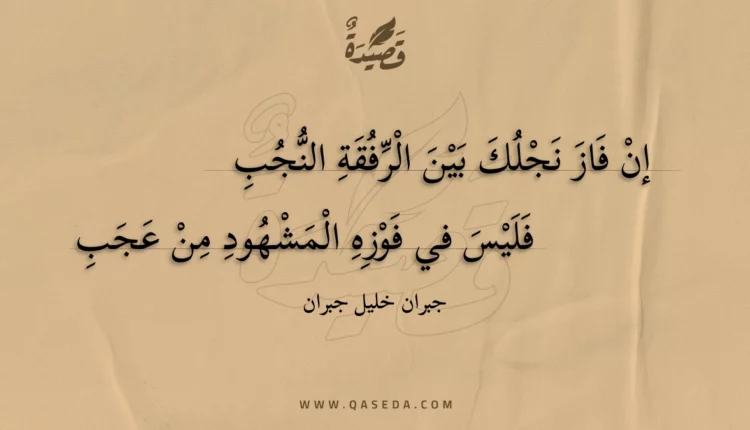 قَصِيْدَةٌ
إنْ فَازَ نَجْلُكَ بَيْنَ الْرِّفُقَةِ النُّجُبِ
فَلَيْسَ في فَوْزِهِ الْمَشْهُودِ مِنْ عَجَبِ
جبران خليل جبران
WWW.QASEDA.COM